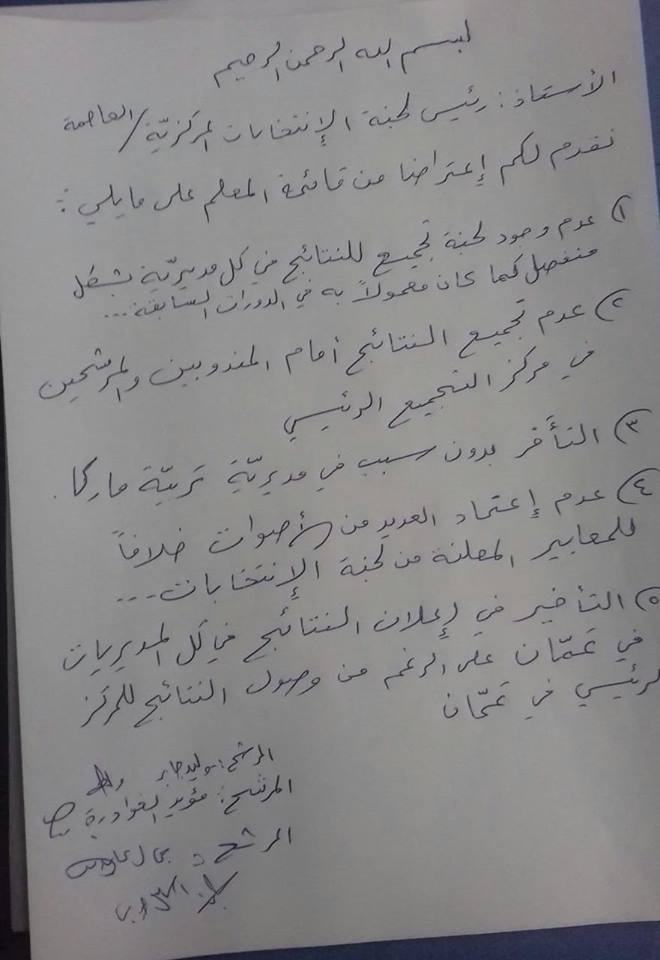 بسم الله الرحمن الرحيم
الأستاذ: رئيس لجنة الإنتخابات المركزيّة/العاصمة
نقدم لكم إعتراضا من قائمة المعلم على مايلي:
١) عدم وجود لجنة تجميع للنتائج في كل مديريّة بشكل
منفصل كما كان معمولاً به في الدورات السابقة...
٢) عدم تجميع النتائج أمام المندوبين والمرشحين
في مركز التجميع الرئيسي
٣) التأخر بدون سبب في مديريّة تربيّة ماركا.
٤) عدم إعتماد العديد من الأصوات خلافاً
للمعايير المعلنة من لجنة الإنتخابات...
٥) التأخير في إعلان النتائج في كل المديريات
في عمّان على الرغم من وصول النتائج للمركز
الرئيسي في عمّان
المرشح: وليد جابر
المرشح: مؤيد الغوادرة
المرشح: